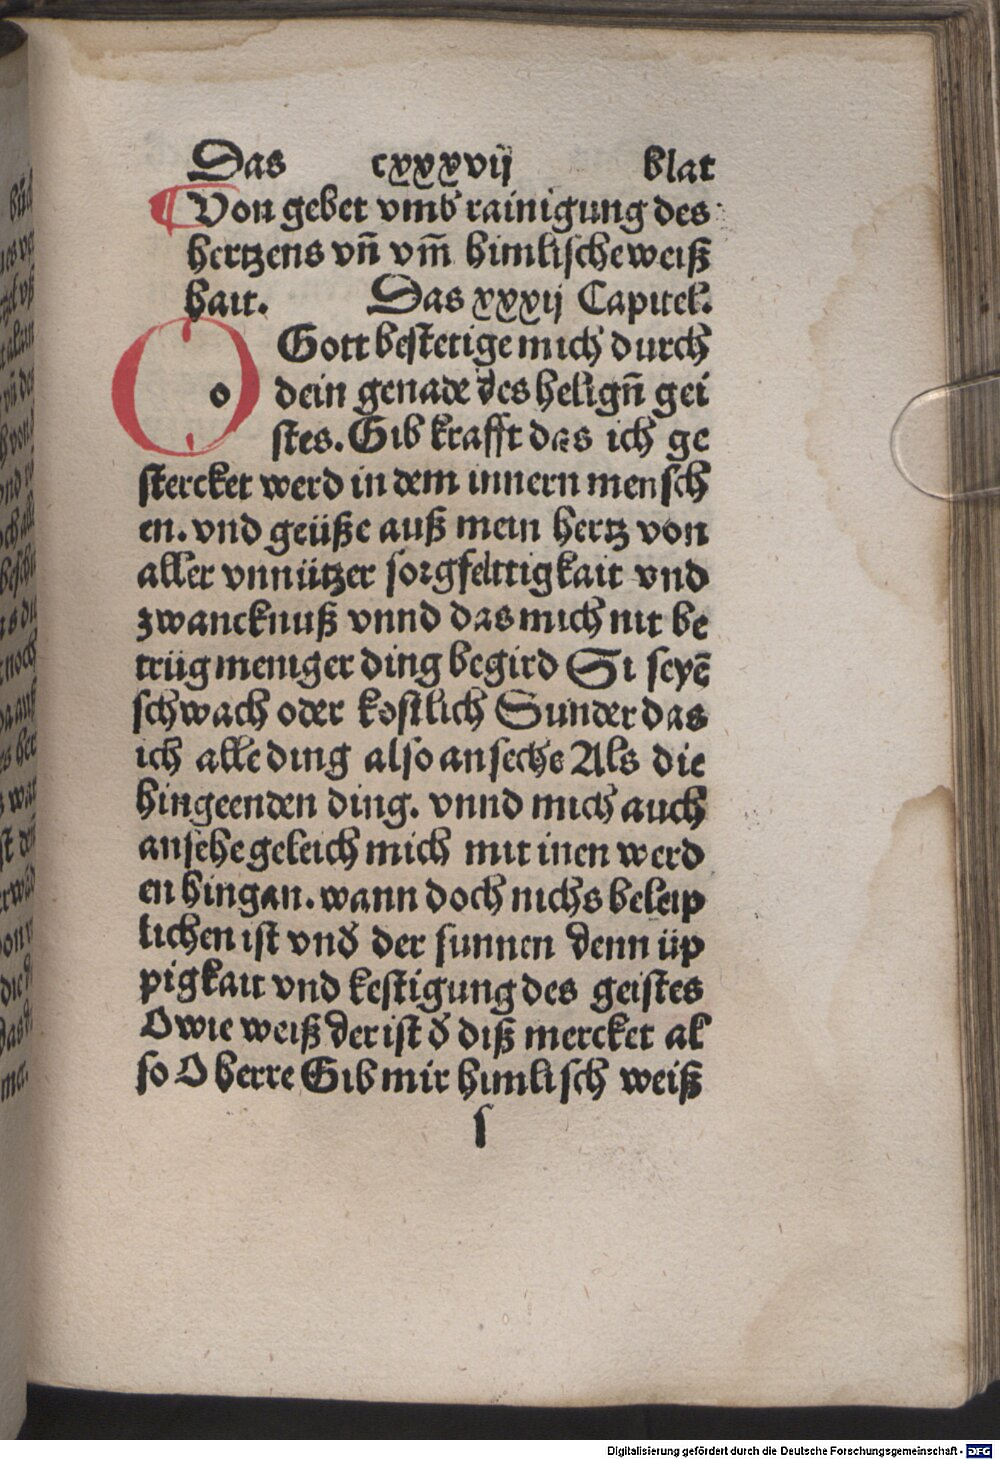 Das cxxxvij blat
Von gebet vmb rainigung des
hertzens vn̄ vm̄ himlische weiß
hait. Das xxxij Capitel.
O Gott bestetige mich durch
dein genade des helign̄ gei
stes. Gib krafft das ich ge
stercket werd in dem innern mensch
en. vnd geüße auß mein hertz von
aller vnnützer sorgfelttigkait vnd
zwancknuß vnnd das mich nit be
trüg meniger ding begird Si seyē
schwach oder kostlich Sunder das
ich alle ding also anseche Als die
hingeenden ding. vnnd mich auch
ansehe geleich mich mit inen werd
en hingan. wann doch nichs beleip
lichen ist vnd̕ der sunnen denn üp
pigkait vnd kestigung des geistes
O wie weiß der ist d̕ diß mercket al
so O herre Gib mir himlisch weiß
s
Digitalisierung gefördert durch die Deutsche Forschungsgemeinschaft - DFG